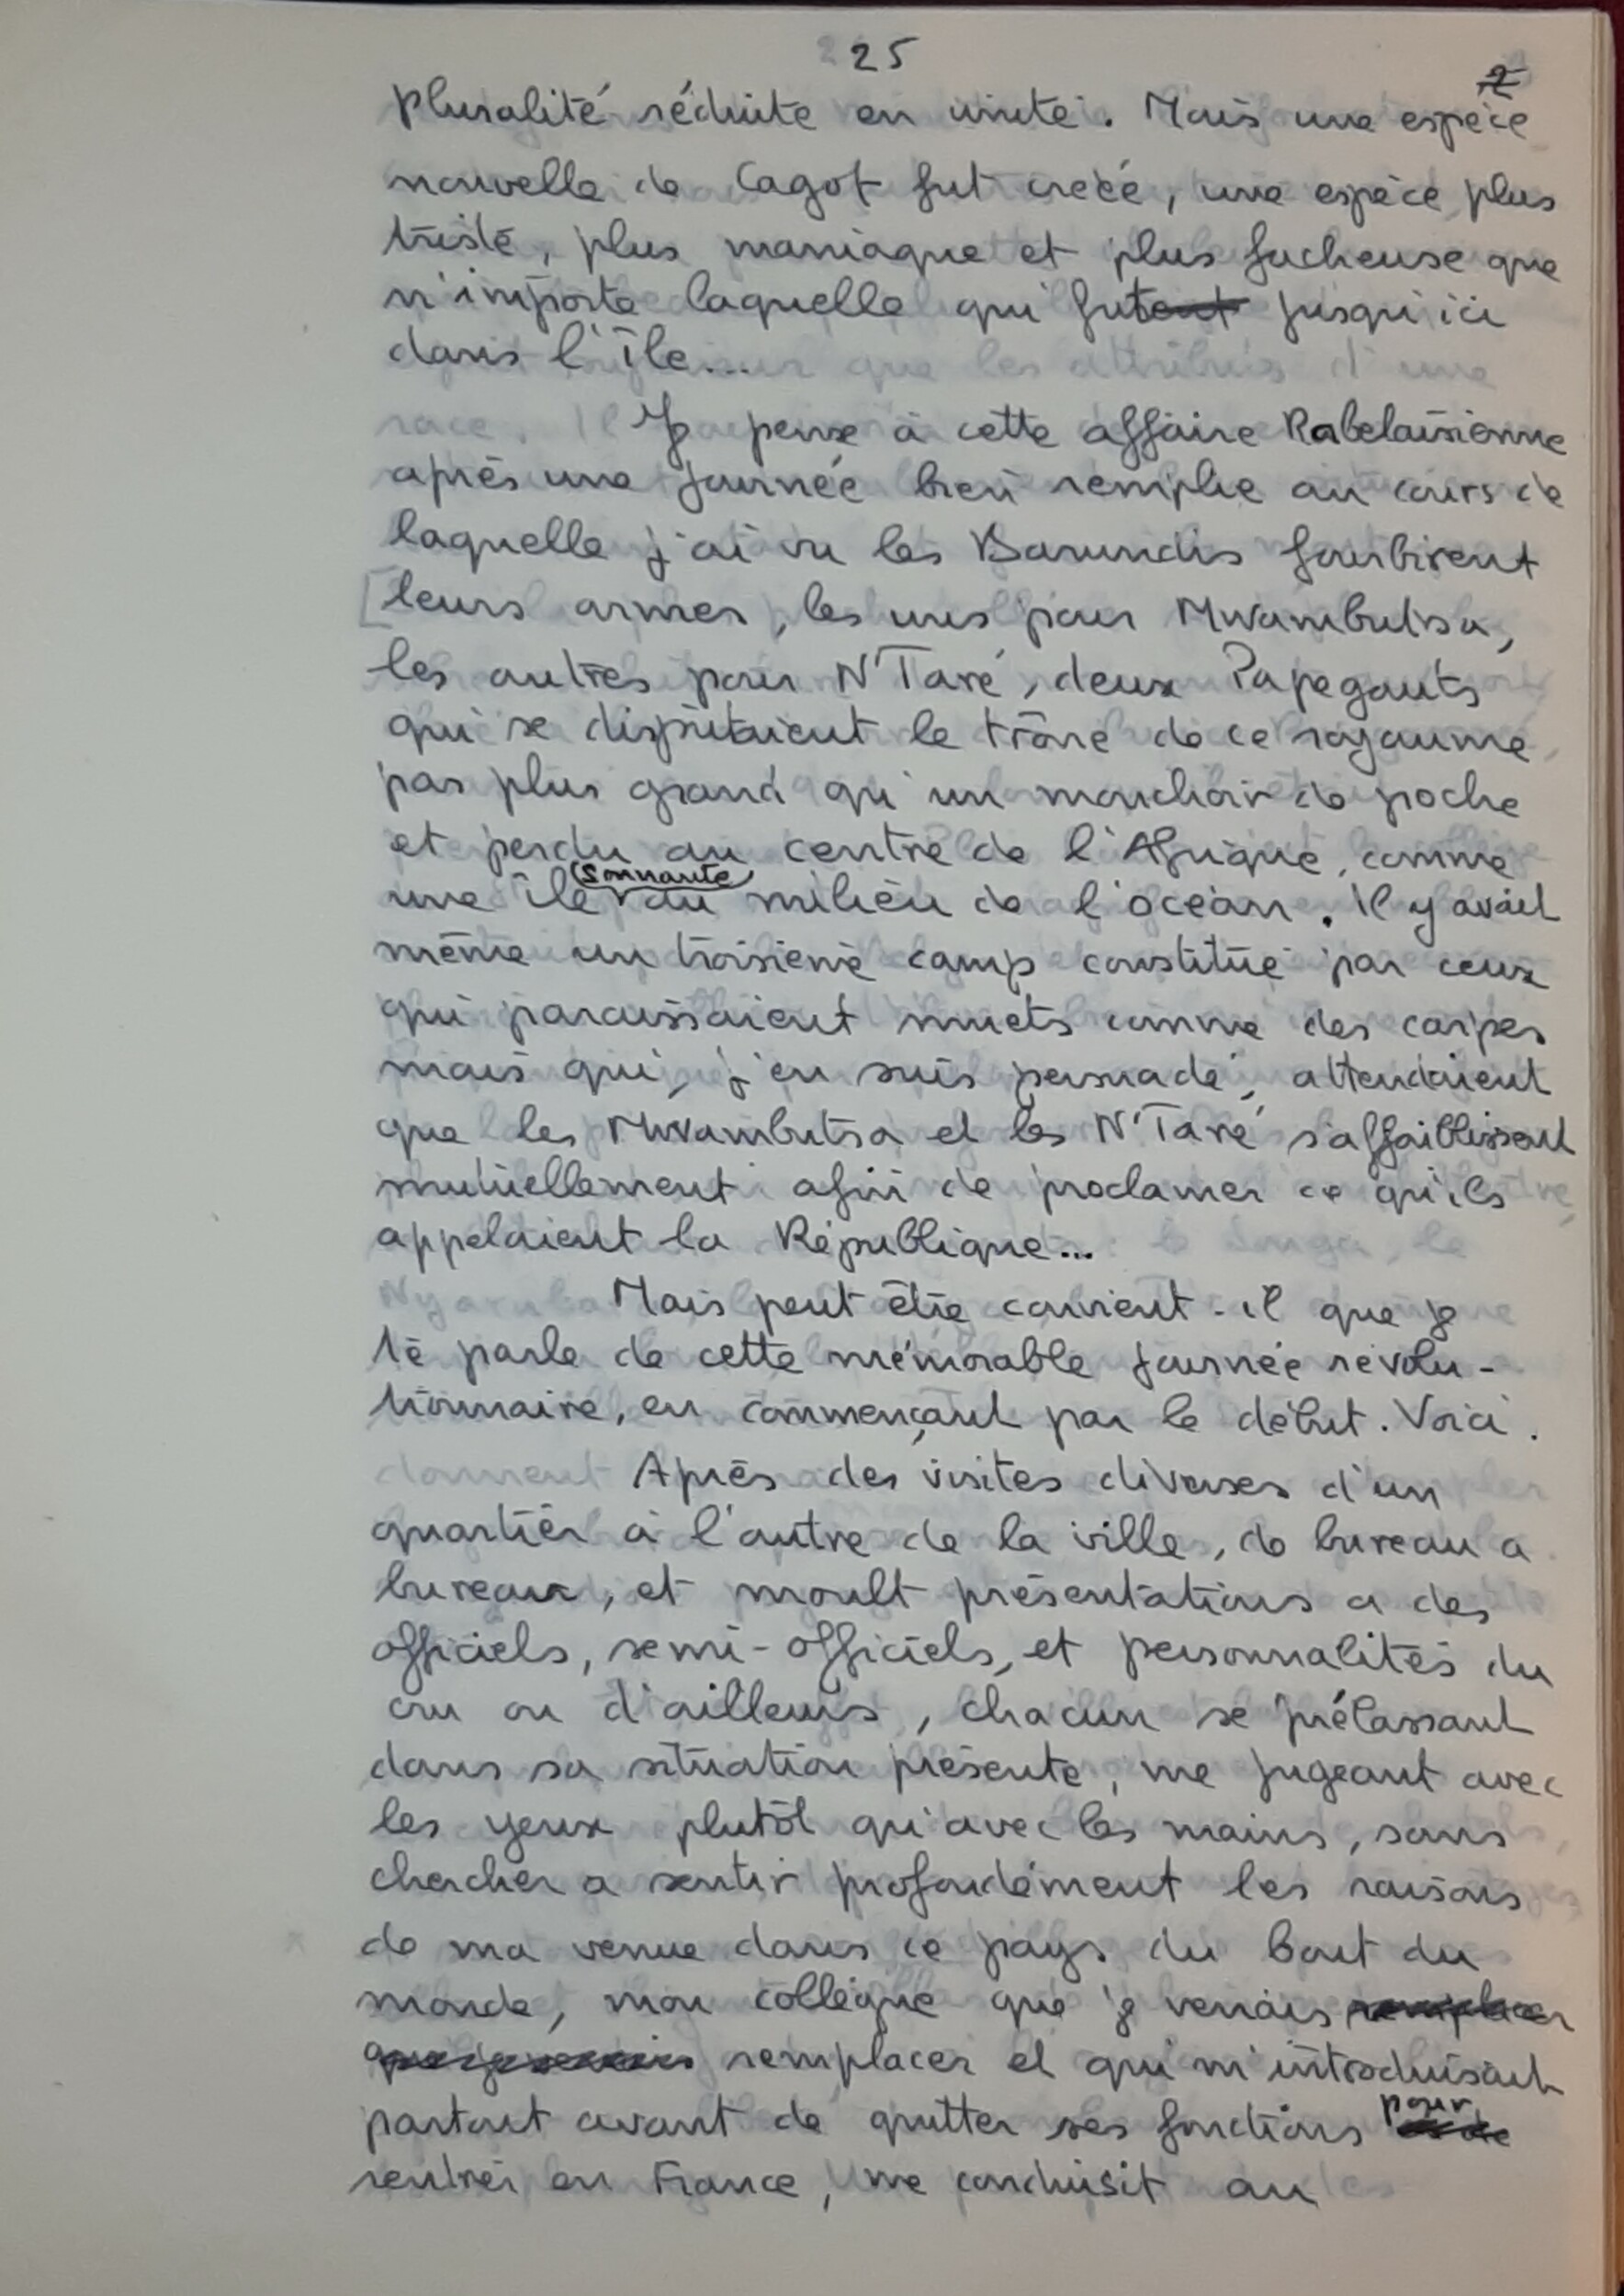 25
2
pluralité réduite en unité. Mais une espèce
nouvelle de Cagot fut créée, une espèce plus
triste, plus maniaque et plus facheuse que
n'importe laquelle qui fut jusqu'ici
dans l'île...
Je pense à cette affaire Rabelaisienne
après une journée bien remplie au cours de
laquelle j'ai vu les Barundis fourbirent
[leurs armes, les uns pour Mwambutsa,
les autres pour N'Taré, deux Papegauts
qui se disputaient le trône de ce royaume
pas plus grand qu'un mouchoir de poche
et perdu au centre de l'Afrique, comme
une île sonnante au milieu de l'océan. Il y avait
même un troisième camp constitué par ceux
qui paraissaient muets comme des carpes
mais qui, j'en suis persuadé, attendaient
que les Mwambutsa et les N'Taré s'affaiblissent
mutuellement afin de proclamer ce qu'ils
appelaient la République...
Mais peut être convient-il que je
te parle de cette mémorable journée révolu-
tionnaire, en commençant par le début. Voici.
Après des visites diverses d'un
quartier à l'autre de la ville, de bureau a
bureaux, et moult présentations a des
officiels, semi-officiels, et personnalités du
cru ou d'ailleurs, chacun se prélassant
dans sa situation présente, me jugeant avec
les yeux plutôt qu'avec les mains, sans
chercher a sentir profondément les raisons
de ma venue dans ce pays du bout du
monde, mon collègue que je venais remplacer
que je venais remplacer et qui m'introduisait
partout avant de quitter ses fonctions pour
rentrer en France, me conduisit au